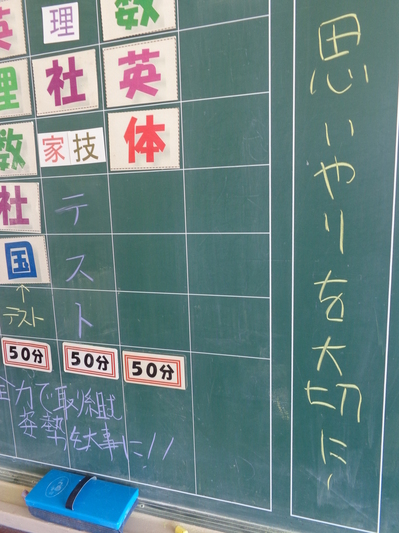 英 理 数
理 社 英
数 家 技 体
社 テスト
国
↑
テスト
50分 50分 50分
全力で取り組む
姿勢を大事に!!
思いやりを大切に